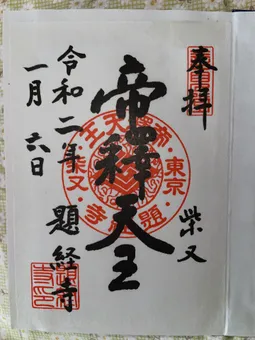 奉拝
柴又
帝釋天王
東京・柴又・題経寺
帝釋天王
令和二年 題経寺
一月六日